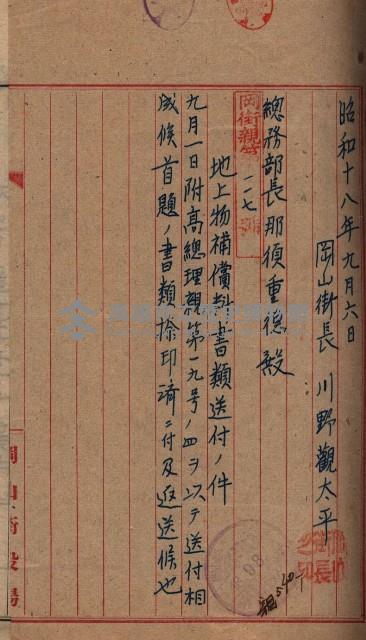 昭和十八年九月六日
岡山街長 川野觀太平
總務部長那須重德殿
岡街親第一一七號
地上物補償料書類送付ノ件
九月一日附高總理親第一九号ノ四ヲ以テ送付相
成候首題ノ書類捺印濟ニ付及返送候也
岡山街役場